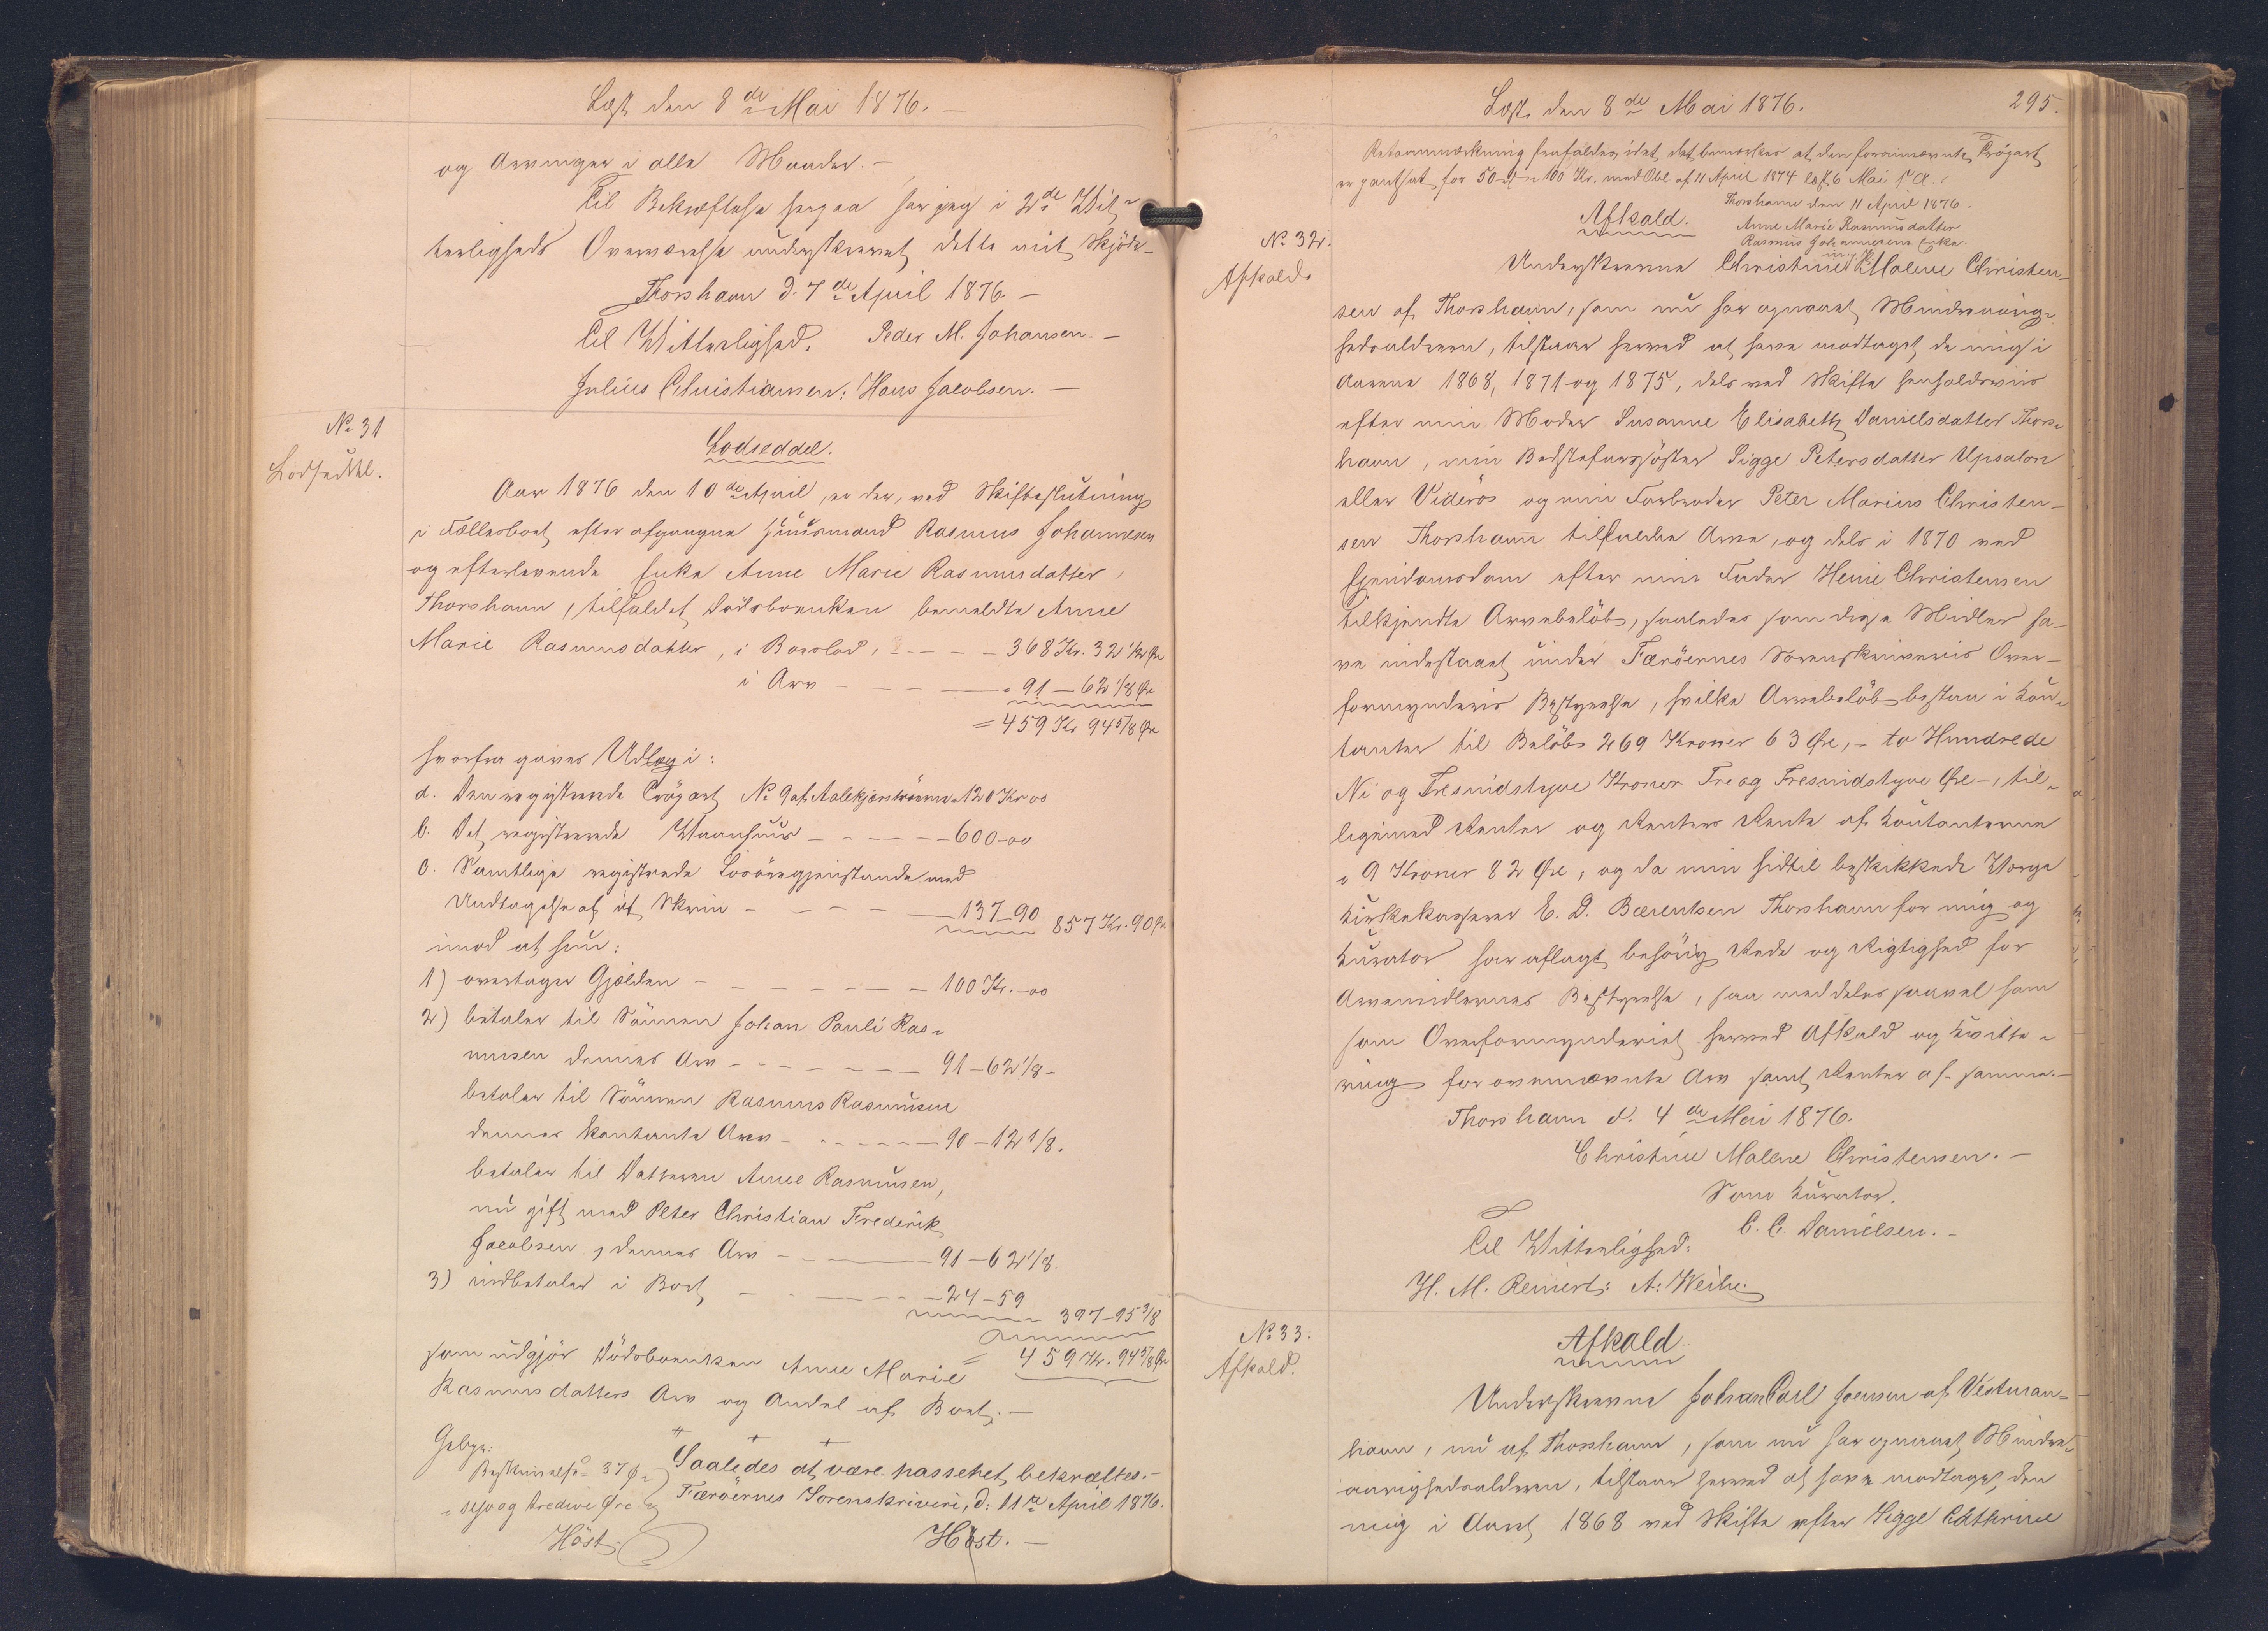 Læst den 8de Mai 1876. –
og Arvinger i alle Maader. –
Til Bekræftelse herpaa har jeg i 2de Vit-
terligheds Overværelse underskrevet dette mit Skjöde –
Thorshavn d. 7de April 1876 –
Til Vitterlighed. Peder M. Johansen. –
Julius Christiansen: Hans Jacobsen. –
No 31
Lodseddel.
Lodseddel.
Aar 1876 den 10de April, er der, ved Skiftesluttning
i Fællesboet efter afgangne Huusmand Rasmus Johannesen
og efterlevende Enke Anne Marie Rasmusdatter,
Thorshavn, tilfaldet Dödsboenken bemeldte Anne
Marie Rasmusdatter, i Boeslod, – – – 368 Kr. 32 4/8 Øre
i Arv – – – – 91 – 62 1/8 Øre
= 459 Kr 94 5/8 Øre
hvorfra gives Udlæg i:
a. Den registrerede Trögart No 9 af 120 Kr 00
b. Det registrerede Vaanhuus – – – – 600 – 00
c. Samtlige registrerede Lösöregjenstande med
Undtagelse af et Skrin – – – – 137 – 90 857 Kr. 90 Øre
imod at hun:
1) overtager Gjælden – – – – – – 100 Kr. – 00
2) betaler til Sönnen Johan Pauli Ras-
musen dennes Arv – – – – – – 91 – 62 1/8 –
betaler til Sönnen Rasmus Rasmusen
dennes kontante Arv – – – – – 90 – 12 1/8.
betaler til Datteren Anne Rasmusen,
nu gift med Peter Christian Frederik
Jacobsen, dennes Arv – – – 91 – 62 1/8.
3) indbetaler i Boet – – – – – 24 – 59
397 – 95 3/8
= 459 Kr. 94 5/8 Øre
som udgjör Dödsboenken Anne Marie
Rasmusdatters Arv og Andel af Boet. –
Gebyr:
Beskrivelse 37 Øre
– syv og tredive Øre.
Höst.
Saaledes at være passeret bekræftes. –
Færöernes Sorenskriveri, d: 11te April 1876.
Höst. –
Læst den 8de Mai 1876.
295.
Retsanmærkning henfalder, idet det bemærkes at den foranævnte Trögart
er pantsat for 50 rd = 100 Kr. med Obl. af 11 April 1874 læst 6 Mai s. A.
Thorshavn den 11 April 1876.
Anne Marie Rasmusdatter
Rasmus Johannesens Enke.
No 32.
Afkald.
Afkald.
Underskrevne Christine Malene Christen-
sen af Thorshavn, som nu har opnaaet Mindreaarig-
hedsalderen, tilstaar herved at have modtaget de mig i
Aarene 1868, 1871 og 1875, dels ved Skifte henholdsviis
efter min Moder Susanne Elisabeth Danielsdatter Thors-
havn, min Bedstefarssöster Sigge Petersdatter Upsalon
eller Viderös og min Farbroder Peter Marius Christen-
sen Thorshavn tilfaldne Arve, og dels i 1870 ved
Eiendomsdom efter min Fader Heine Christensen
tilkjendte Arvebelöb, saaledes som disse Midler ha-
ve indestaaet under Færöernes Sorenskriveries Over-
formynderis Bestyrelse, hvilke Arvebelöb bestaa i Kon-
tanter til Belöb 269 Kroner 63 Øre, – to Hundrede
Ni og Tresindstyve Kroner Tre og Tresindstyve Øre –, til-
ligemed Renter og Renters Rente af Kontanterne
9 Kroner 82 Øre; og da min hidtil beskikkede Værge
Kirkekasserer E. D. Bærentsen Thorshavn for mig og
Kurator har aflagt behörig Rede og Rigtighed for
Arvemidlernes Bestyrelse, saa meddeles saavel ham
som Overformynderiet herved Afkald og Kvitte-
ring for ovennævnte Arv samt Renter af samme. –
Thorshavn d. 4de Mai 1876.
Christine Malene Christensen. –
Som Kurator.
C. C. Danielsen. –
Til Vitterlighed:
H. M. Reinert: A: Weihe.
No 33.
Afkald.
Afkald.
Underskrevne Johan Carl Joensen af Vestman-
havn, nu af Thorshavn, som nu har opnaaet Mindre-
aarighedsalderen, tilstaar herved at have modtaget den
mig i Aaret 1868 ved Skifte efter Sigge Cathrine